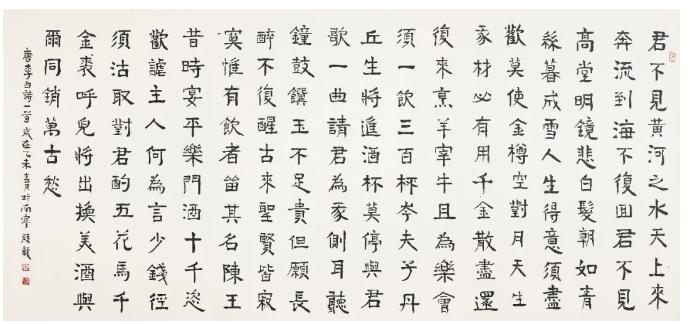 君不見黃河之水天上來
奔流到海不復回君不見
高堂明鏡悲白髮朝如青
絲暮成雪人生得意須盡
歡莫使金樽空對月天生
我材必有用千金散盡還
復來烹羊宰牛且為樂會
須一飲三百杯岑夫子丹
丘生將進酒杯莫停與君
歌一曲請君為我側耳聽
鐘鼓饌玉不足貴但願長
醉不復醒古來聖賢皆寂
寞惟有飲者留其名陳王
昔時宴平樂鬥酒十千恣
歡謔主人何為言少錢徑
須沽取對君酌五花馬千
金裘呼兒將出換美酒與
爾同銷萬古愁
唐李白詩一首歲在乙未於南寧